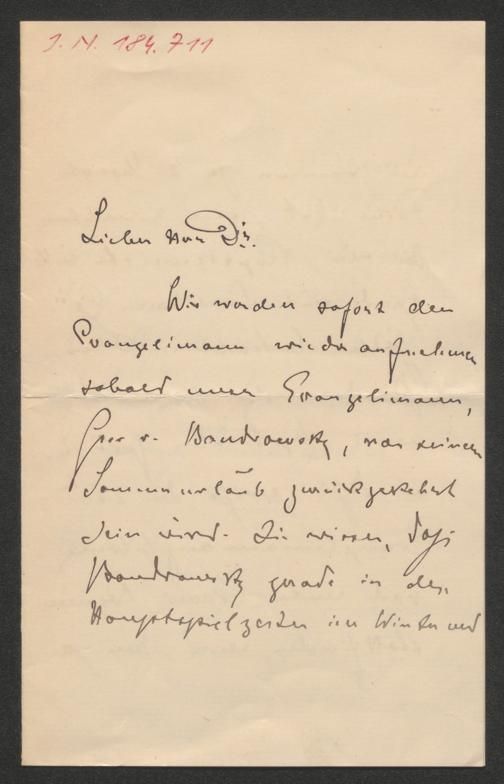 J. N. 184.711
Lieber Herr Dr.
Wir werden sofort den
Evangelimann wieder aufnehmen
sobald unser Evangelimann,
Herr v. Bandrowsky, von seinem
Sommerurlaub zurückgekehrt
sein wird. Sie wissen, daß
Bandrowsky gerade in den
Hauptspielzeiten im Winter und